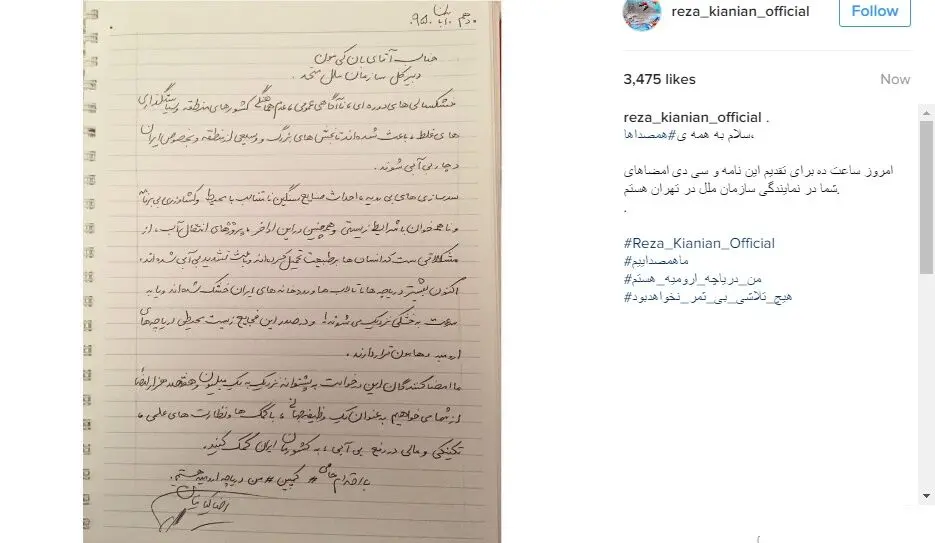 دهم آبان ۹۵
جناب آقای بان کی مون
دبیر کل سازمان ملل متحد.
خشکسالی‌های دوره‌ای، ناآگاهی عمومی، عدم هماهنگی کشورهای منطقه و سیاستگذاری
های غلط، باعث شده‌اند تا بخش‌های بزرگ و وسیعی از منطقه و بخصوص ایران
دچار بی‌آبی شوند.
سدسازی‌های بی رویه، احداث صنایع سنگین نامتناسب با محیط و کشاورزی بی برنامه
و ناهمخوان با شرایط زیستی و همچنین در این اواخر، پروژه‌های انتقال آب، از
مشکلاتی ست که انسان ها بر طبیعت تحمیل کرده‌اند و باعث تشدید بی آبی شده‌اند.
اکنون بیشتر دریاچه‌ها، تالاب‌ها و رودخانه‌های ایران خشک شده‌اند و یا به
سرعت به خشکی نزدیک می شوند! و در صدر این فجایع زیست محیطی دریاچه‌های
ارومیه و هامون قرار دارند.
ما امضاکنندگان این درخواست به پشتوانه نزدیک به یک میلیون و هفتصد هزار امضا
از شما می خواهیم به عنوان یک وظیفه جهانی، با کمک ها و نظارت های علمی،
تکنیکی و مالی در رفع بی آبی، به کشورمان ایران کمک کنید.
با احترام حامی # کمپین # من دریاچه ارومیه هستم.
رضا کیانیان
reza_kianian_official
Follow
3,475 likes
Now
reza_kianian_official .
سلام به همه ی#همصداها،
امروز ساعت ده برای تقدیم این نامه و سی دی امضاهای
شما در نمایندگی سازمان ملل در تهران هستم.
.
#Reza_Kianian_Official
#ماهمصداییم
#من_دریاچه_ارومیه_هستم
#هیچ_تلاشی_بی_ثمر_نخواهدبود